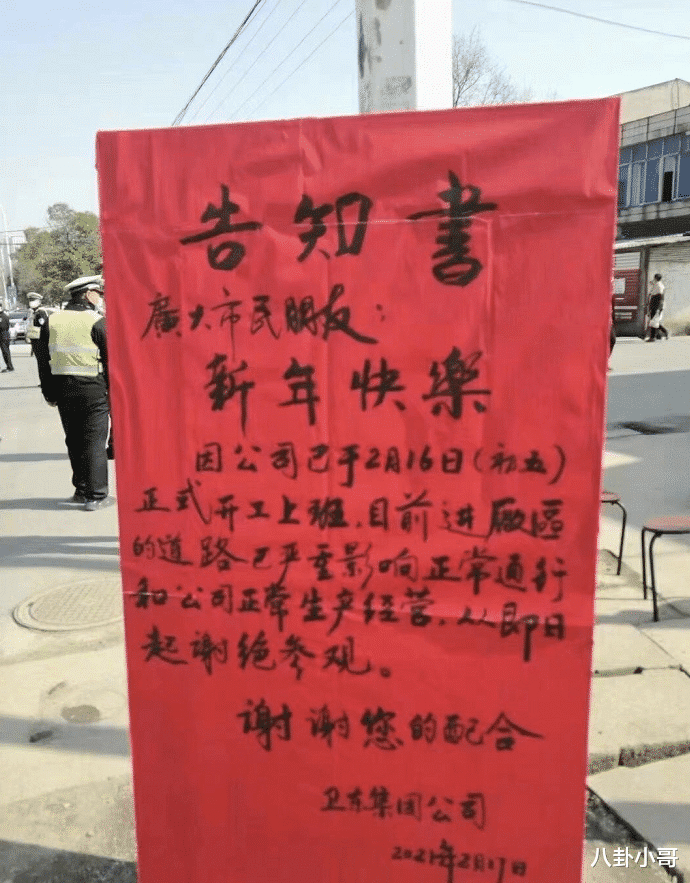 告知書
廣大市民朋友:
新年快樂
因公司已于2月16日(初五)
正式开工上班,目前进廠區
的道路已严重影响正常通行
和公司正常生产经营,从即日
起谢绝参观。
谢谢您的配合
卫东集团公司
2021年2月17日
八卦小哥